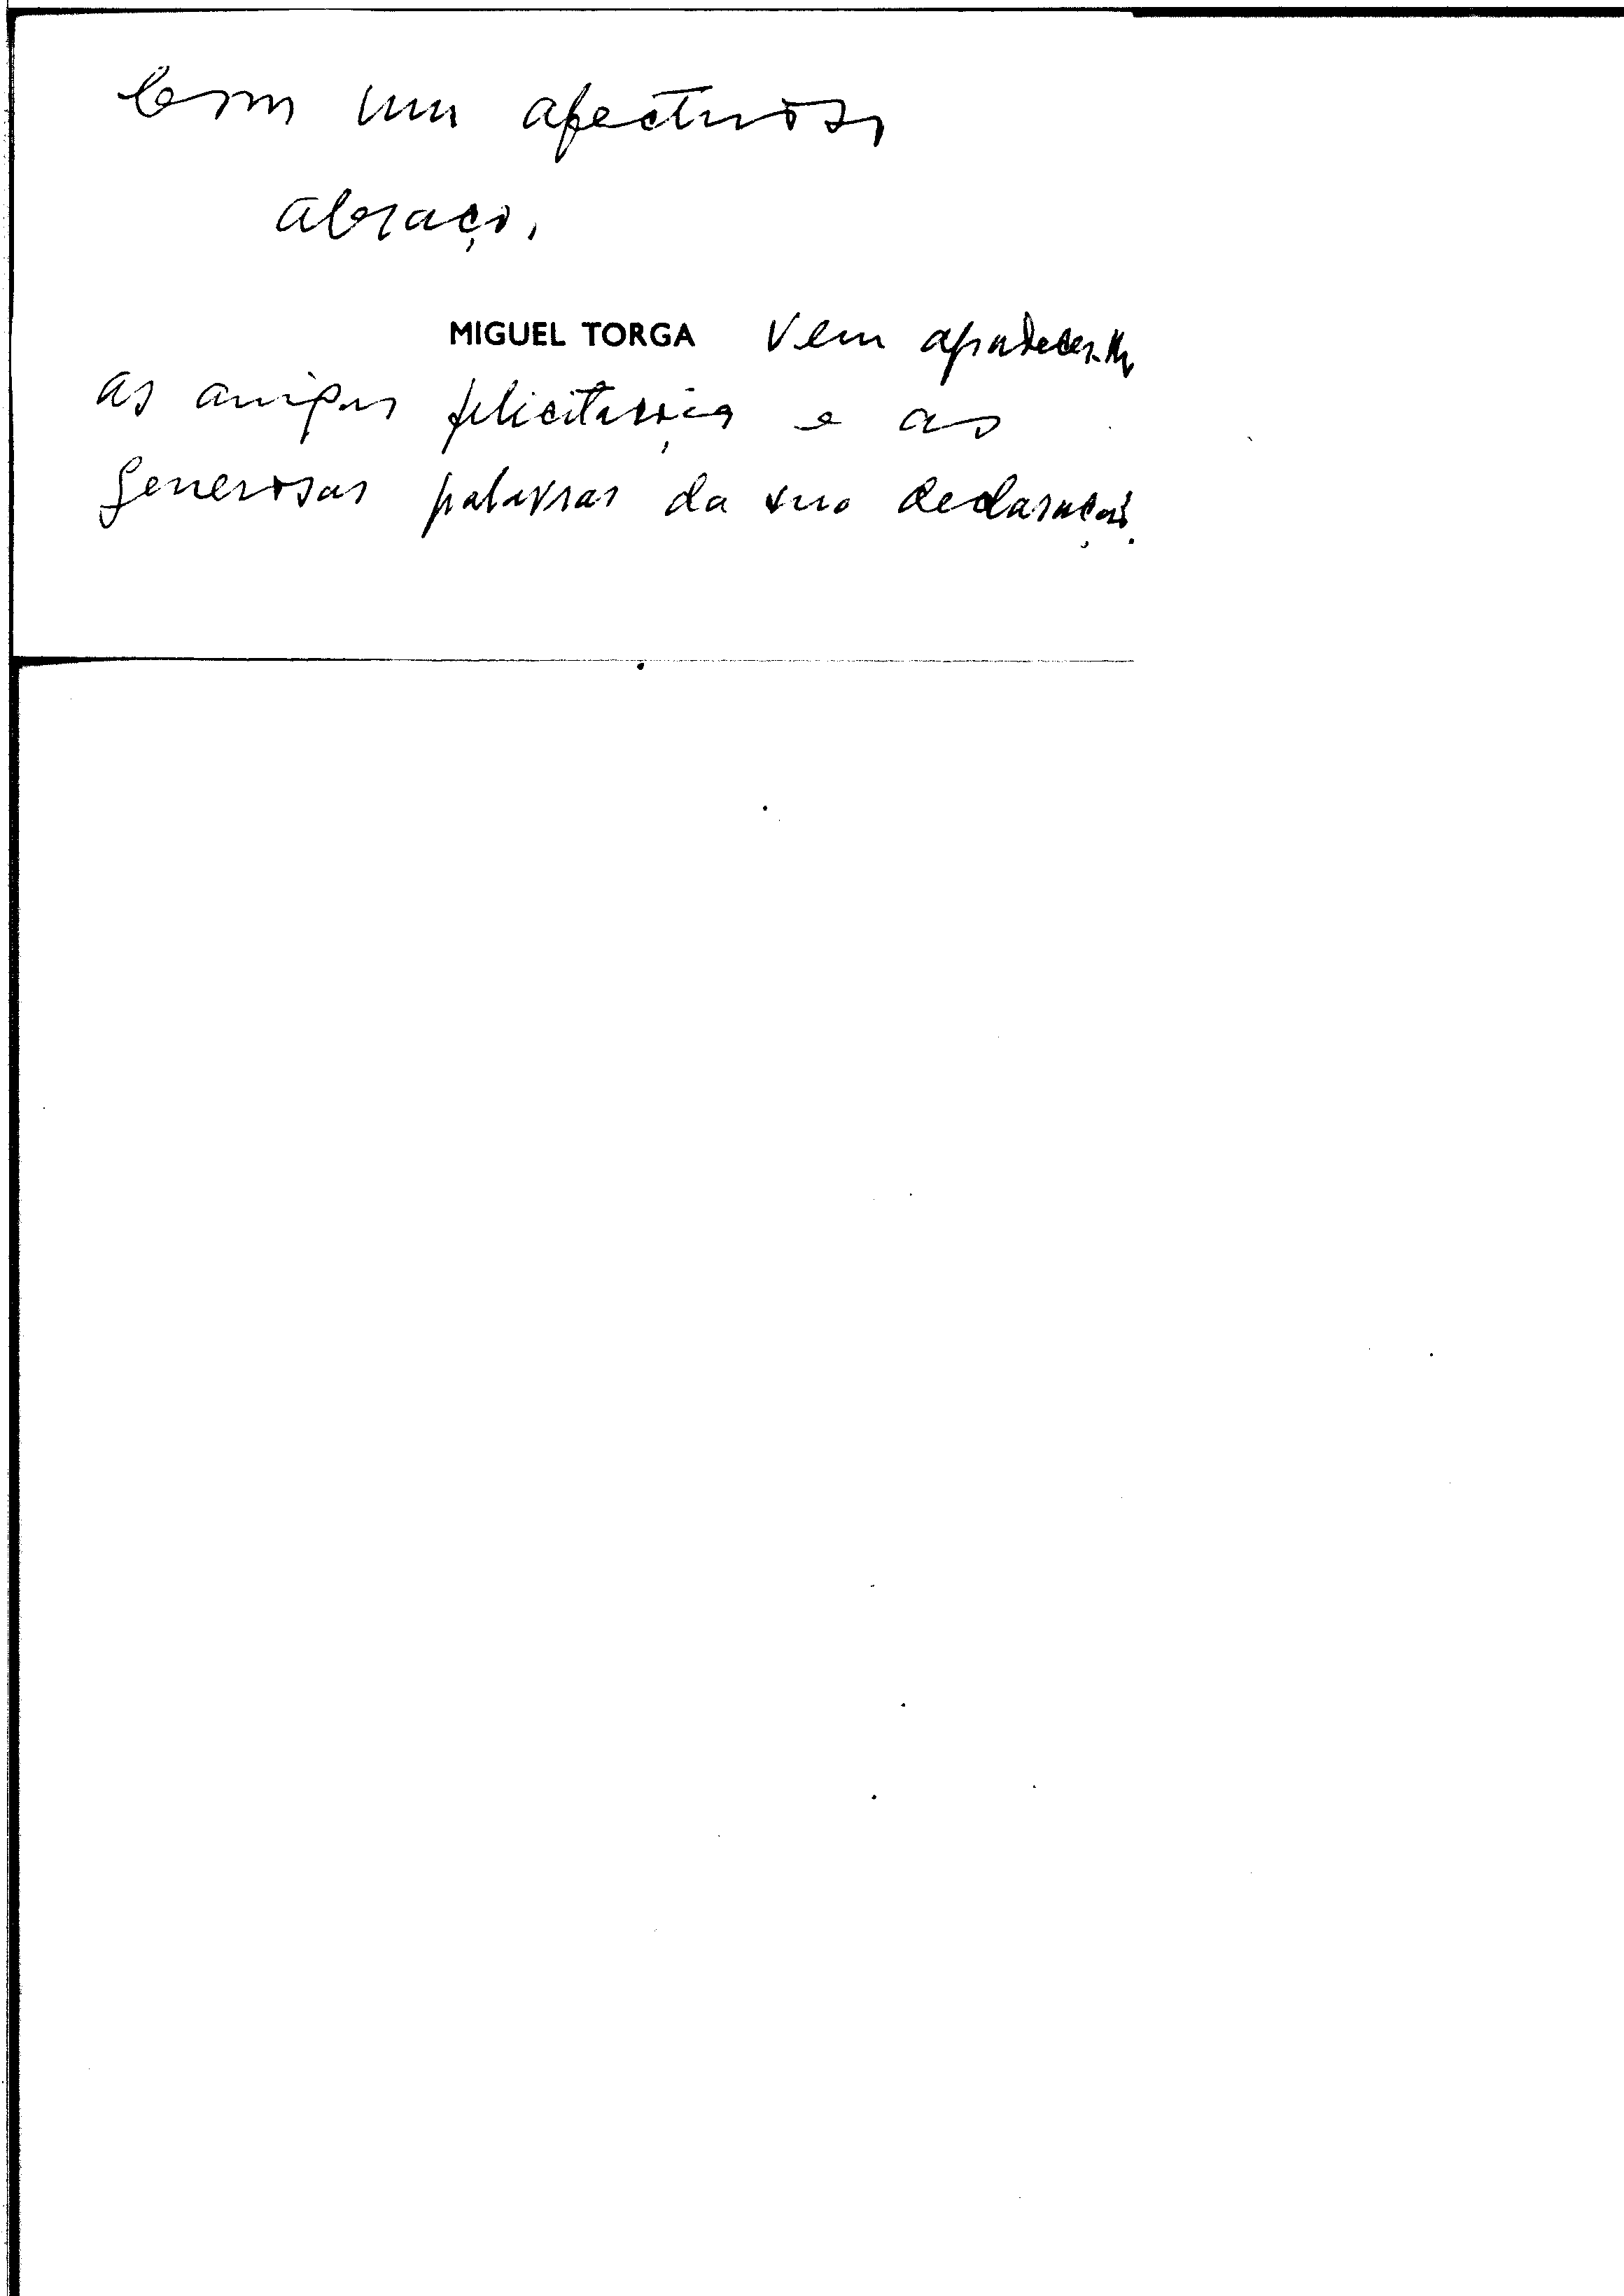 Com um afectuoso
abraço,
MIGUEL TORGA vem agradecer-lhe
as amigas felicitações e as
generosas palavras da sua declaração.